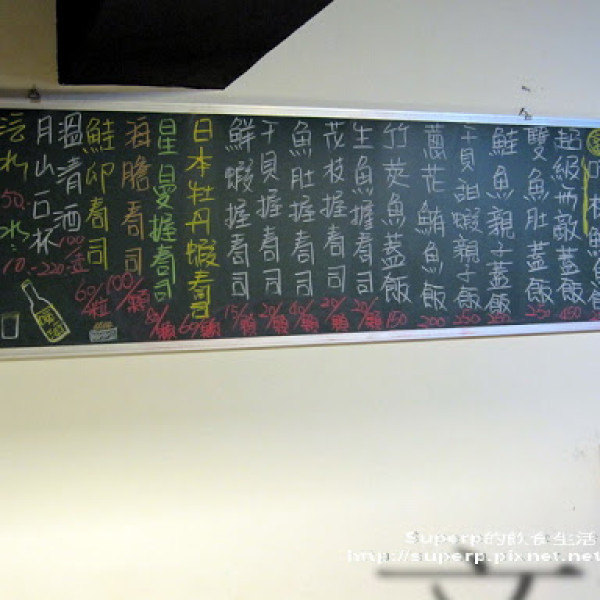 超級無敵蓋飯 450
雙魚肚蓋飯 250
鮭魚親子蓋飯 250
干貝甜蝦親子蓋飯 250
蔥花鮪魚飯 200
竹莢魚蓋飯 150
生魚握壽司 20/顆
花枝握壽司 20/顆
魚肚握壽司 40/顆
干貝握壽司 20/顆
鮮蝦握壽司 15/顆
日本牡丹蝦壽司 60/顆
星鰻握壽司 80/顆
海膽壽司 100/顆
鮭卵壽司 60/粒
溫清酒 100/壺
月山石杯 220
Superp的飲食生活
http://superp.pixnet.net